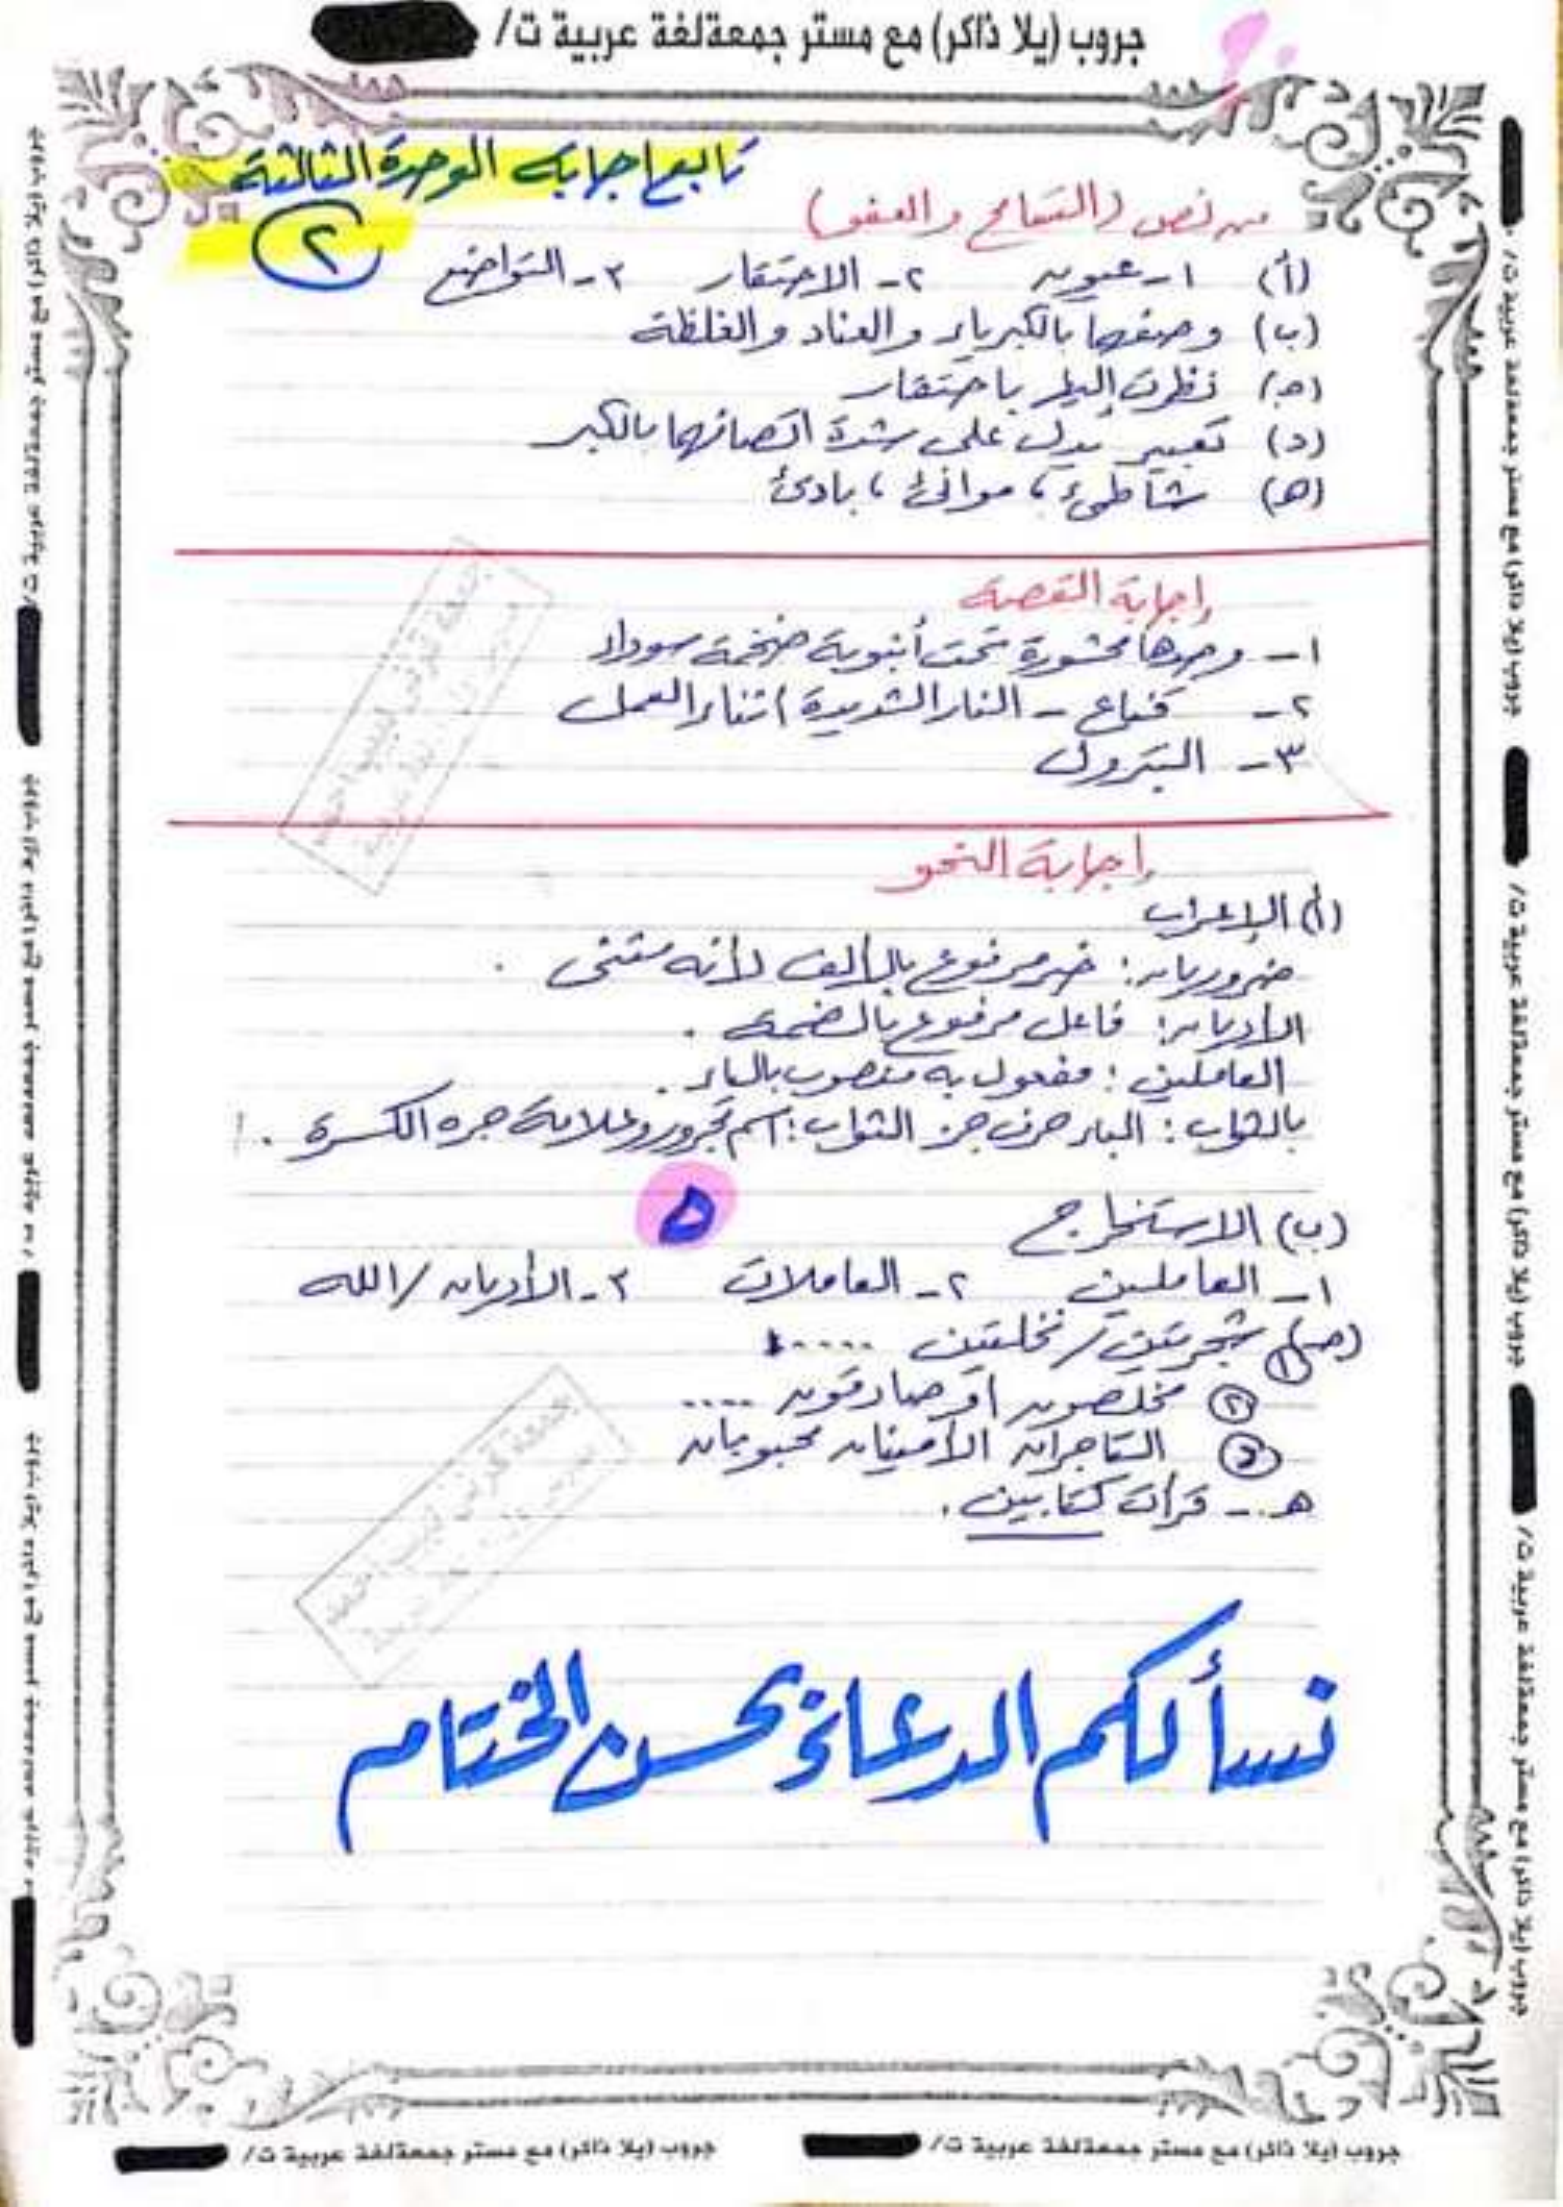 جروب (يلا ذاكر) مع مستر جمعة لغة عربية ت/
تابع إجابة الوحدة الثالثة
٢
من نص (التسامح والعفو)
(أ) ١- عيون ٢- الاحتقار ٣- التواضع
(ب) وصفهما بالكبرياء والعناد والغلظة
(جـ) نظرت إليه باحتقار
(د) تعبير يدل على شدة اتصافهما بالكبر
(هـ) شاطئ، موانئ، بادئ
إجابة القصة
١- وجدها محشورة تحت أنبوبة ضخمة سوداء
٢- قناع - النار الشديدة أثناء العمل
٣- البترول
إجابة النحو
(أ) الإعراب
ضروريان: خبر مرفوع بالألف لأنه مثنى .
الأديان: فاعل مرفوع بالضمة .
العاملين: مفعول به منصوب بالياء .
بالثواب: الباء حرف جر الثواب: اسم مجرور وعلامة جره الكسرة .
٥
(ب) الاستخراج
١- العاملين ٢- العاملات ٣- الأديان / الله
(جـ) ① شجرتين / نخلتين .....
② مخلصون أو صادقون ....
③ التاجران الأمينان محبوبان
هـ - قرأت كتابين .
نسألكم الدعاء بحسن الختام
جروب (يلا ذاكر) مع مستر جمعة لغة عربية ت/
جروب (يلا ذاكر) مع مستر جمعة لغة عربية ت/
جروب (يلا ذاكر) مع مستر جمعة لغة عربية ت/
جروب (يلا ذاكر) مع مستر جمعة لغة عربية ت/
جروب (يلا ذاكر) مع مستر جمعة لغة عربية ت/